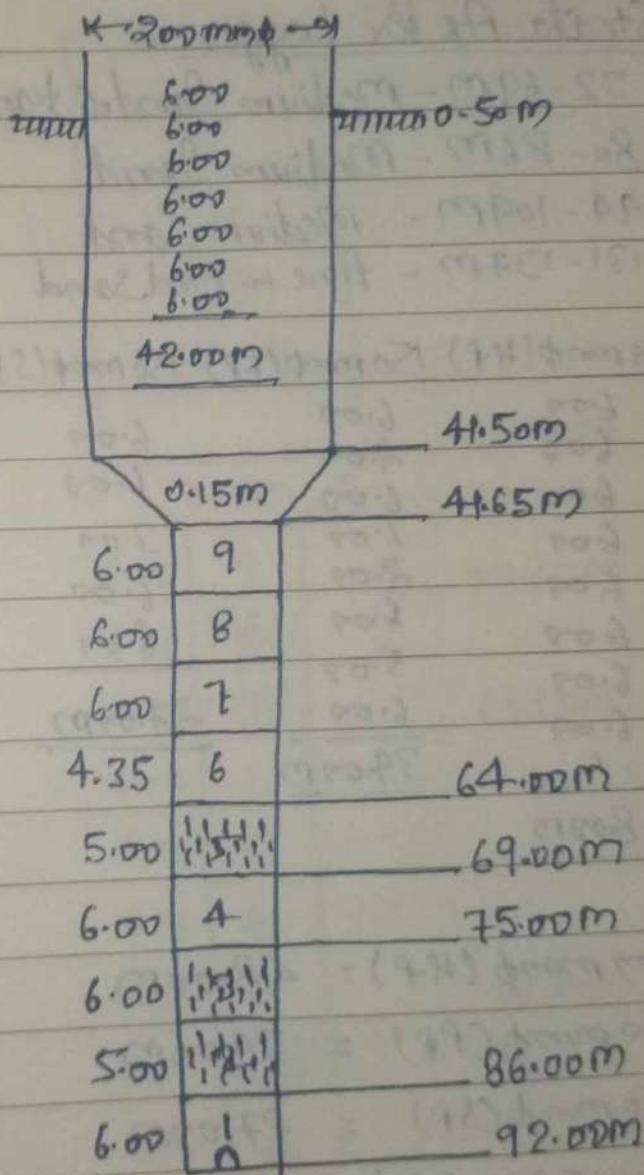 200mmφ
6.00
6.00
0.50m
6.00
6.00
6.00
6.00
6.00
42.00m
41.50m
0.15m
41.65m
6.00 9
6.00 8
6.00 7
4.35 6
64.00m
5.00 5
69.00m
6.00 4
75.00m
6.00 3
5.00 2
86.00m
6.00 1
92.00m